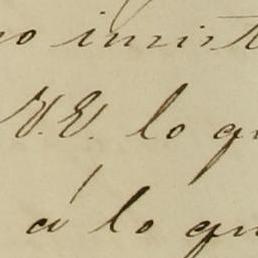 no insist
V.E. lo qu
á lo qu